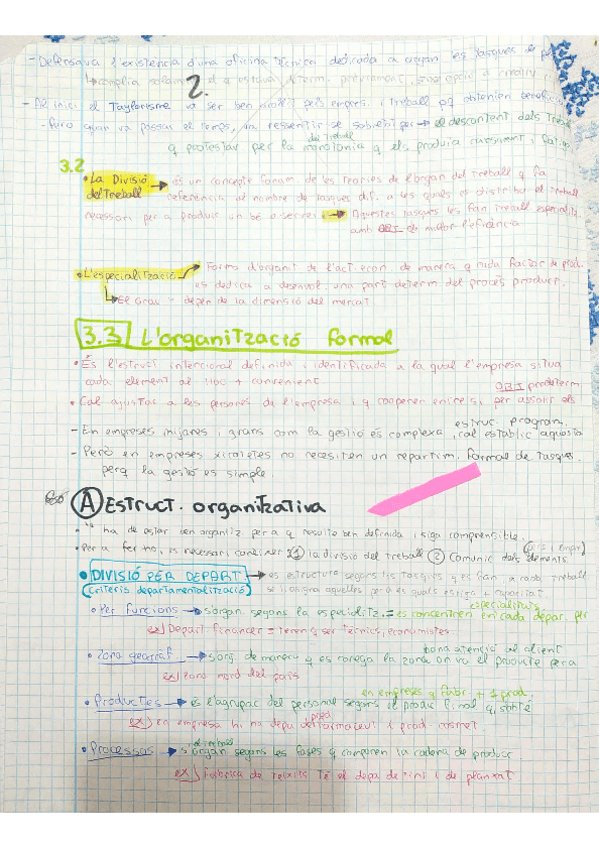 - Defensava l'existència d'una oficina tècnica dedicada a organ. les tasques
2.
- Al inici el Taylorisme va ser ben acollit pels empres. i treball pq obtenien benefici
- Però quan va passar el temps, va ressentir-se sobretot per → el descontent dels treb.
del treball
q protestar per la monotonia q els produïa
3.2
• La Divisió → és un concepte fonam. de les teories de l'organ del treball q fa
del Treball referència al nombre de tasques dif. a les quals es distribui el treball
necessari per a produir un bé o servei → Aquestes tasques les fan treball especialitz
amb OBJ de millor l'eficiència
• L'especialització → Forma d'organit de l'act econ. de manera q cada factor de prod.
es dedica a desenvol. una part determ. del procés product.
↳ El Grau - depèn de la dimensió del mercat
3.3 L'organització formal
• És l'estruct intencional definida i identificada a la qual l'empresa situa
cada element al lloc + convenient
OBJ predeterm
• Cal ajustar a les persones de l'empresa i q cooperen entre si, per assolir els
estruc. program.
- En empreses mitjanes i grans com la gestió és complexa, cal establir aquesta
- Però en empreses xicotetes no necesiten un repartim. formal de tasques
perq la gestió es simple
A Estruct. organitzativa
• ha de estar ben organitz per a q resulte ben definida i siga comprensible.
• Per a fer-ho, es necesari combinar: 1 la divisió del treball 2 Comunic dels elements
• DIVISIÓ PER DEPART → es estructura segons les tasques q es fan, a cada treball
(criteris departamentalització) se li asigna aquelles per a les quals estiga + capacitat.
especialitats
• Per funcions → s'organ segons la especialitz. = es concentren en cada depar. per
ex) Depart. financer = tenen q ser tècnics, economistes
bona atenció al client
• Zona geogràf. → s'org. de manera q es conega la zona on va el producte per a
ex) zona nord del país
en empreses q fabr. + 1 prod.
• Productes → és l'agrupac del personal segons el produc final q s'obté
ex) en empresa hi ha depa de prod farmaceut i prod cosmet
• Processos → s'organ segons les fases q componen la cadena de produc
ex) Fàbrica de teixits té el depa de tint i de planxat